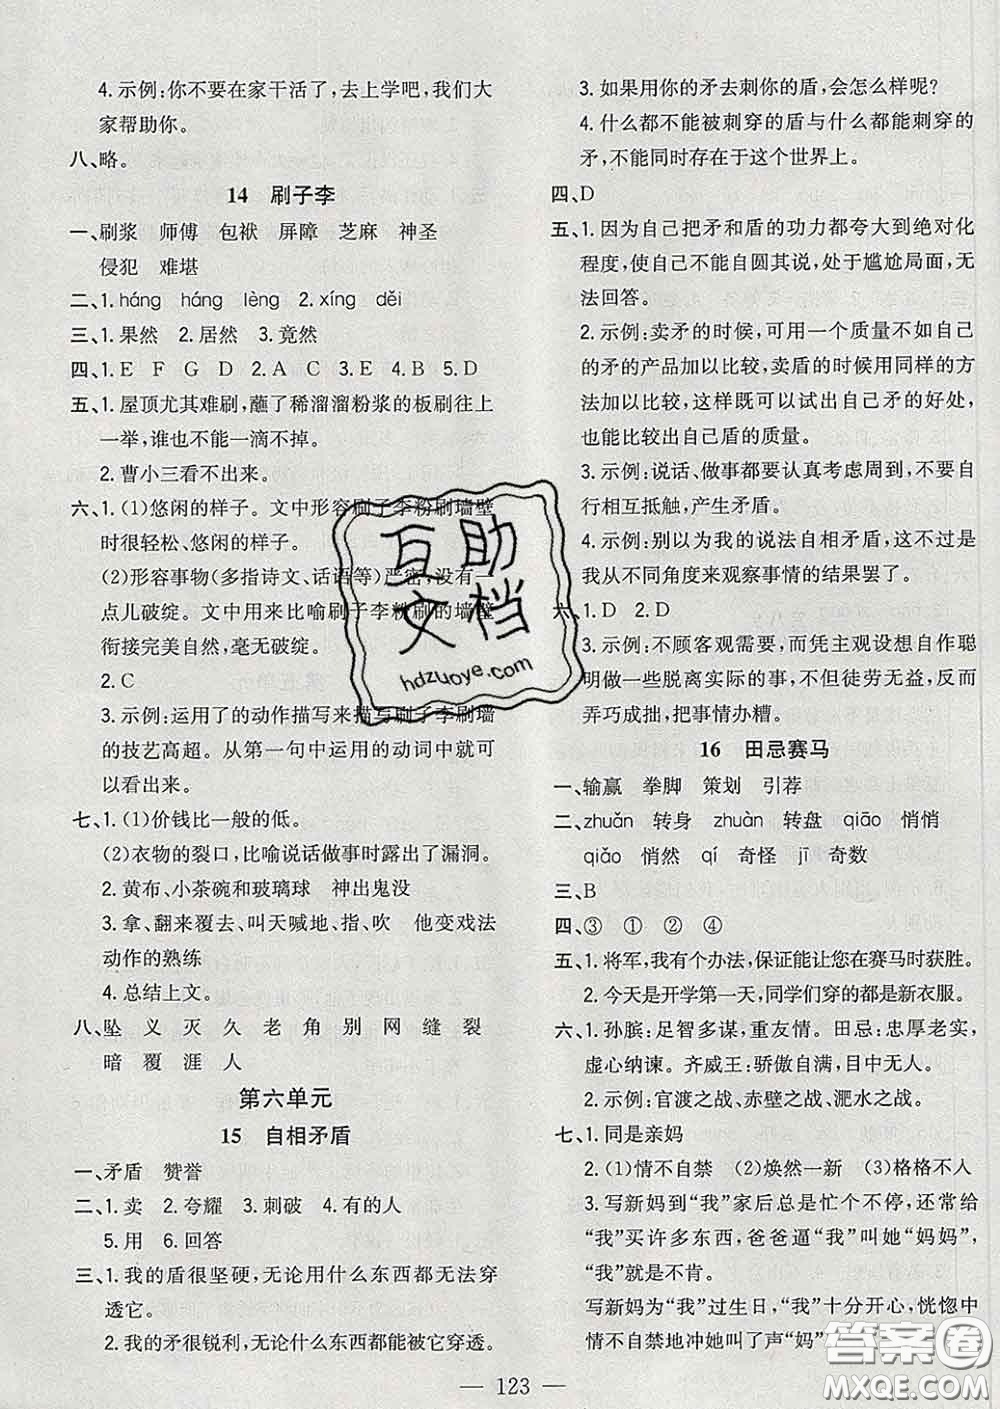 4.示例:你不要在家干活了,快上学吧,我们大
家帮助你。
八、略。
14 刷子李
一、刷浆 师傅 包袱 屏障 芝麻 神圣
侵犯 难堪
二、1.háng háng lèng 2.xíng děi
三、1.果然 2.居然 3.竟然
四、1.E F G D 2.A C 3.E 4.B 5.D
五、1.屋顶尤其难刷,蘸了稀溜溜粉浆的板刷往上
一举,谁也不能一滴不掉。
2.曹小三看不出来。
六、1.(1)悠闲的样子。文中形容刷子李粉刷墙壁
时很轻松、悠闲的样子。
(2)形容事物(多指诗文、话语等)严密,没有一
点儿破绽。文中用来比喻刷子李粉刷的墙壁
衔接完美自然,毫无破绽。
2.C
3.示例:运用了的动作描写来描写刷子李刷墙
的技艺高超。从第一句中运用的动词中就可
以看出来。
七、1.(1)价钱比一般的低。
(2)衣物的裂口,比喻说话做事时露出了漏洞。
2.黄布、小茶碗和玻璃球 神出鬼没
3.拿、翻来覆去、叫天喊地、指、吹 他变戏法
动作的熟练
4.总结上文。
八、坠 义 灭 久 老 角 别 网 缝 裂
暗 覆 涯 人
第六单元
15 自相矛盾
一、矛盾 赞誉
二、1.卖 2.夸耀 3.刺破 4.有的人
5.用 6.回答
三、1.我的盾很坚硬,无论用什么东西都无法穿
透它。
2.我的矛很锐利,无论什么东西都能被它穿透。
3.如果用你的矛去刺你的盾,会怎么样呢?
4.什么都不能被刺穿的盾与什么都能刺穿的
矛,不能同时存在于这个世界上。
四、D
五、1.因为自己把矛和盾的功力都夸大到绝对化
程度,使自己不能自圆其说,处于尴尬局面,无
法回答。
2.示例:卖矛的时候,可用一个质量不如自己
的矛的产品加以比较,卖盾的时候用同样的方
法加以比较,这样既可以试出自己矛的好处,
也能比较出自己盾的质量。
3.示例:说话、做事都要认真考虑周到,不要自
行相互抵触,产生矛盾。
4.示例:别以为我的说法自相矛盾,这不过是
我从不同角度来观察事情的结果罢了。
六、1.D 2.D
3.示例:不顾客观需要,而凭主观设想自作聪
明做一些脱离实际的事,不但徒劳无益,反而
弄巧成拙,把事情办糟。
16 田忌赛马
一、输赢 拳脚 策划 引荐
二、zhuǎn 转身 zhuàn 转盘 qiāo 悄悄
qiǎo 悄然 qí 奇怪 jī 奇数
三、B
四、③ ① ② ④
五、1.将军,我有个办法,保证能让您在赛马时获胜。
2.今天是开学第一天,同学们穿的都是新衣服。
六、1.孙膑:足智多谋,重友情。田忌:忠厚老实,
虚心纳谏。齐威王:骄傲自满,目中无人。
2.示例:官渡之战、赤壁之战、淝水之战。
七、1.同是亲妈
2.(1)情不自禁 (2)焕然一新 (3)格格不入
3.写新妈到“我”家后总是忙个不停,还常给
“我”买许多东西,爸爸逼“我”叫她“妈妈”,
“我”就是不肯。
写新妈为“我”过生日,“我”十分开心,恍惚中
情不自禁地冲她叫了声“妈”
123
互助
文档
hdzuoye.com
答案圈
MXQE.COM